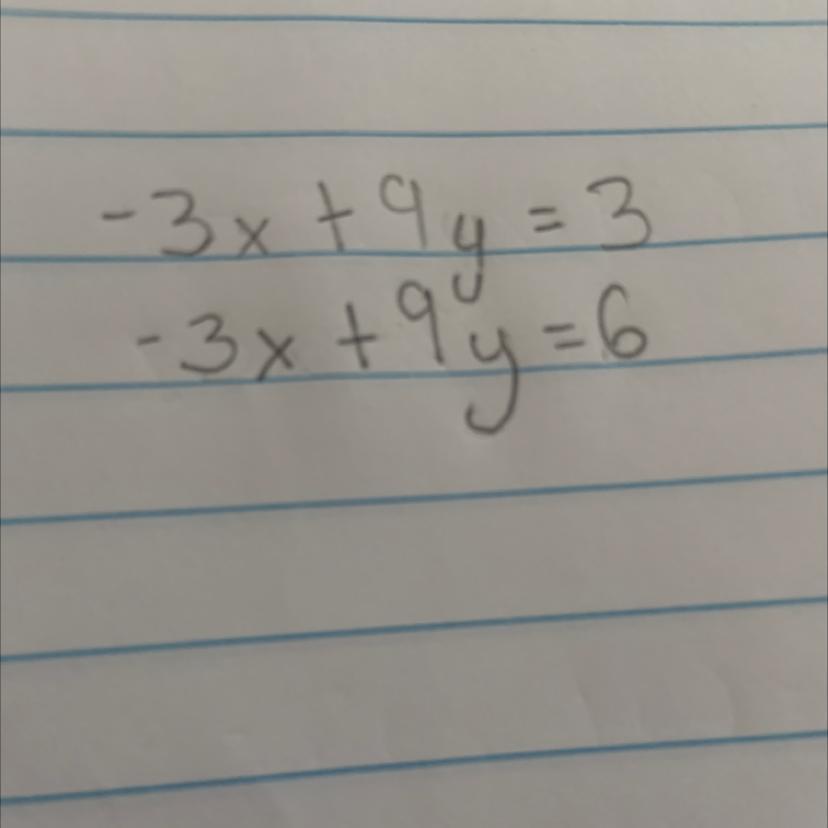 -3x + 9y = 3
-3x + 9y = 6